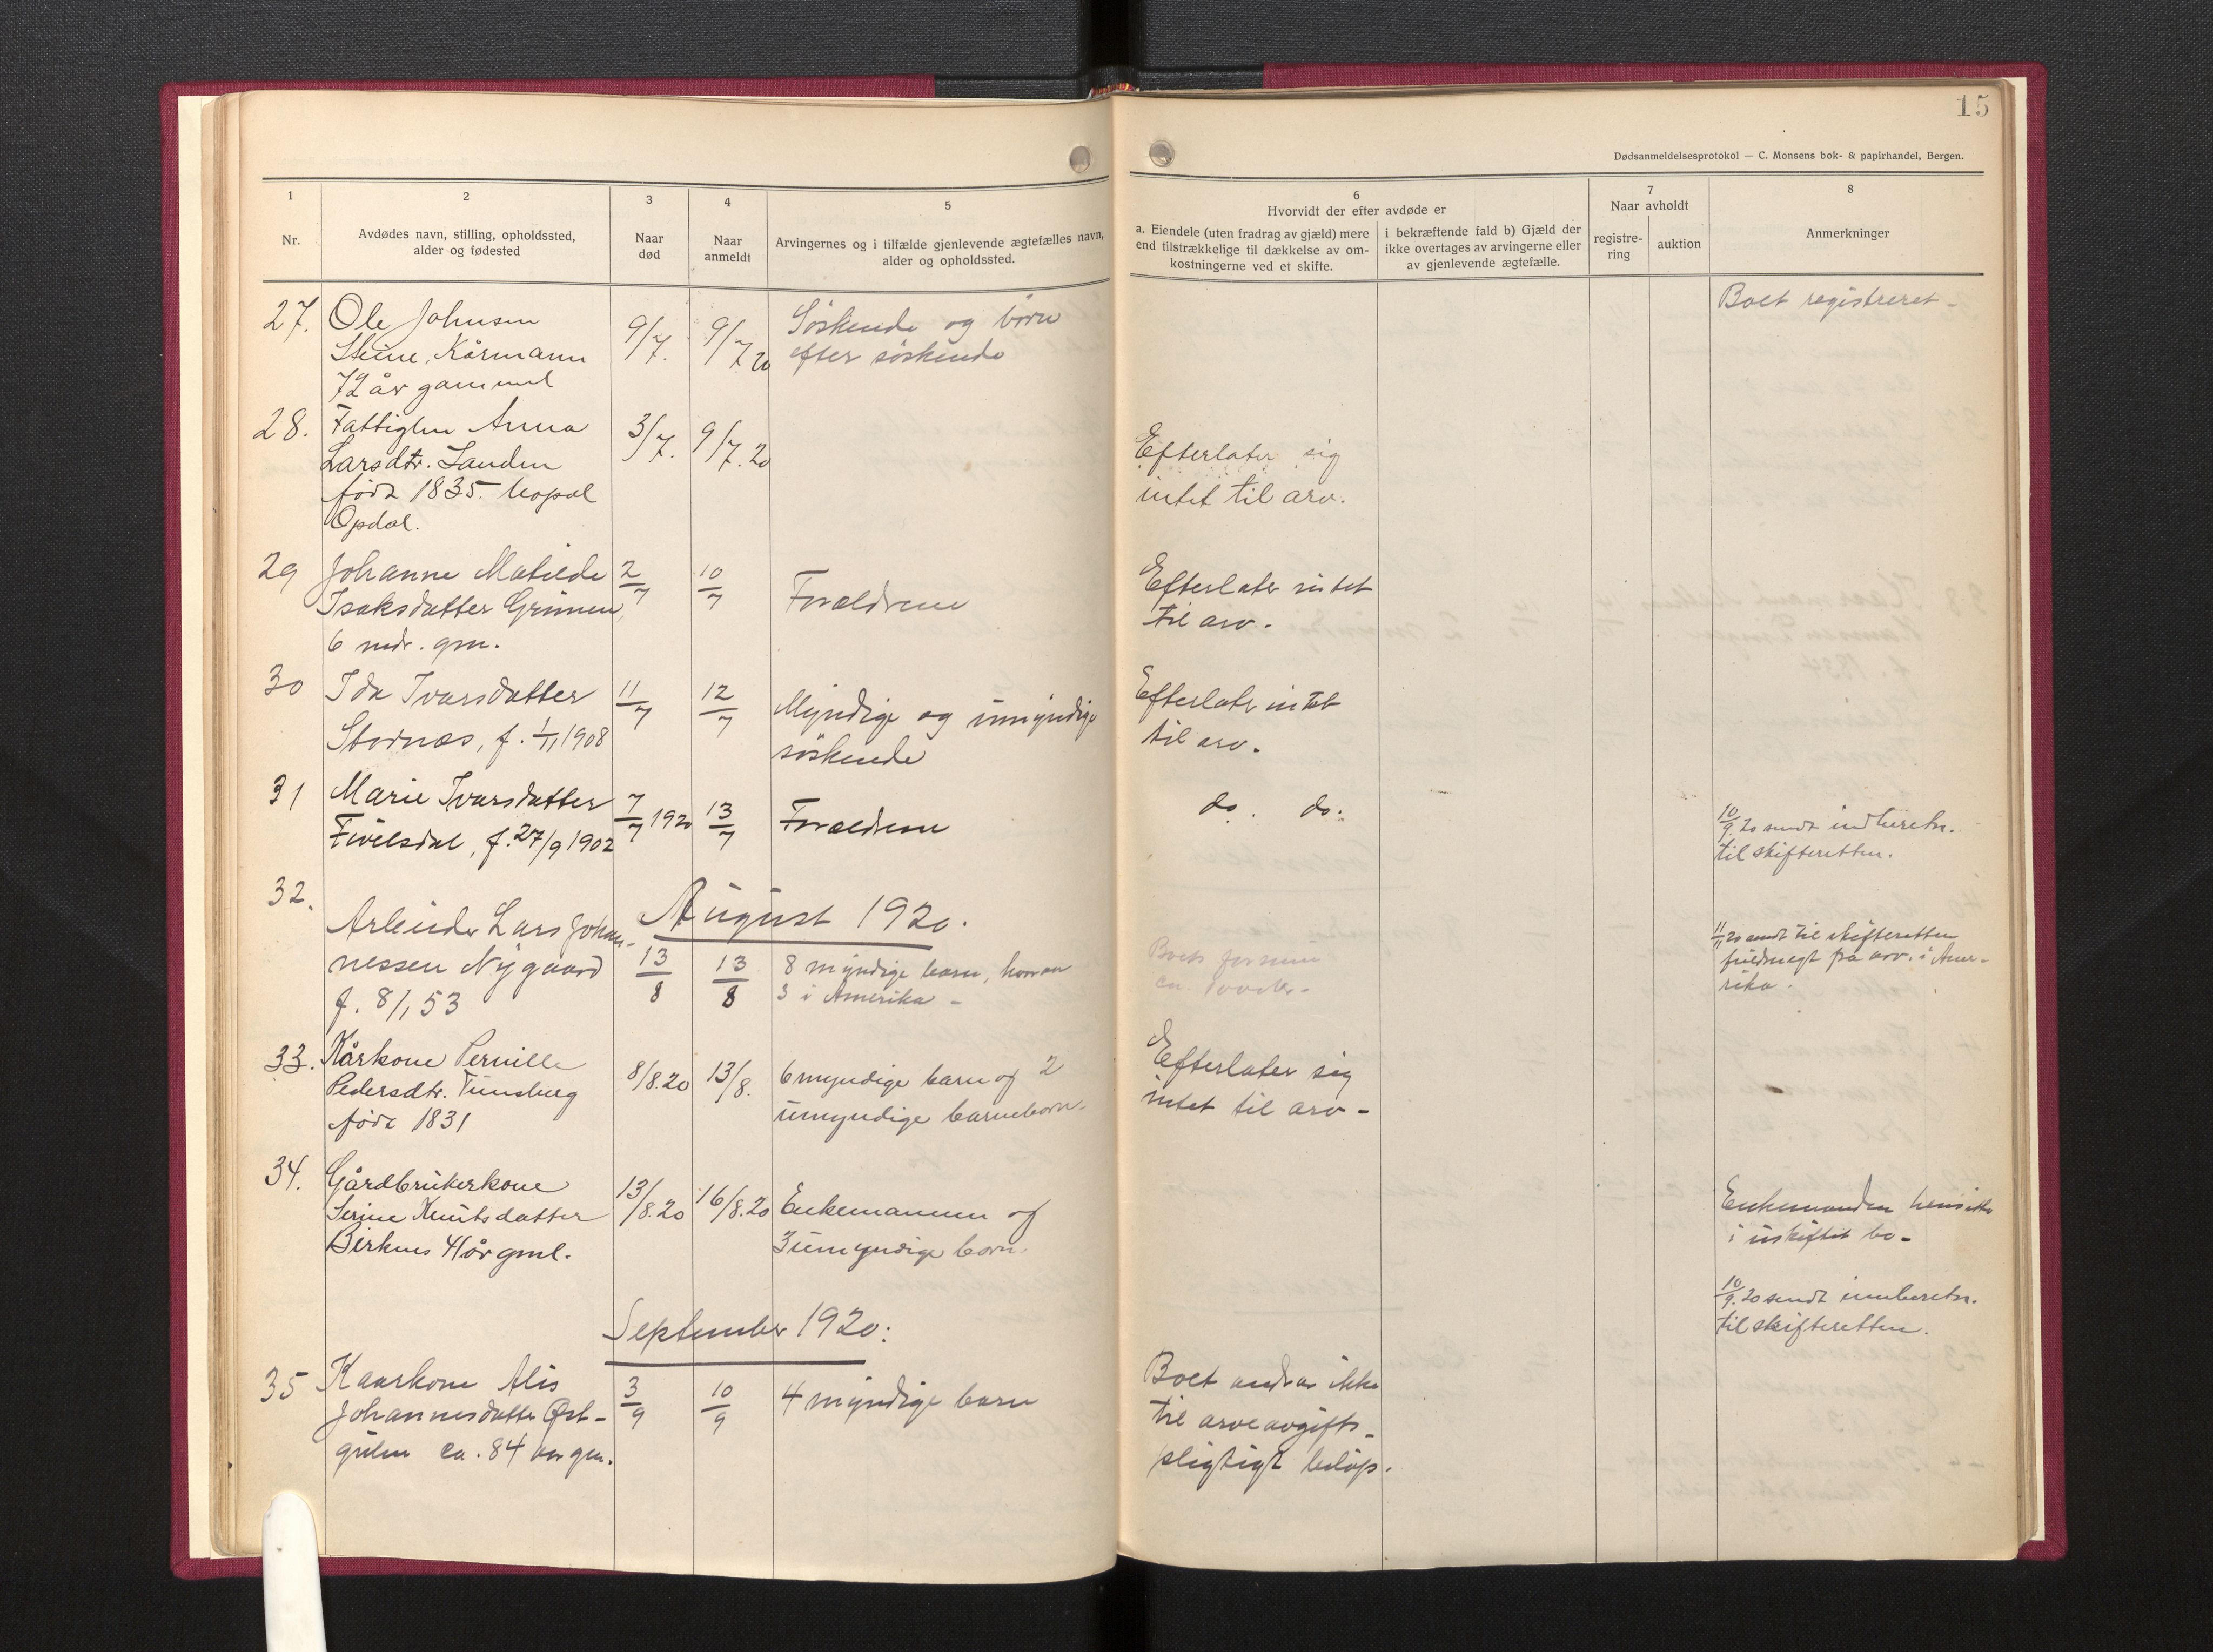 15
Dødsanmeldelsesprotokol — C. Monsens bok- & papirhandel, Bergen.
1 2 3 4 5
Nr.
Avdødes navn, stilling, opholdssted,
alder og fødested
Naar
død
Naar
anmeldt
Arvingernes og i tilfælde gjenlevende ægtefælles navn,
alder og opholdssted.
6
Hvorvidt der efter avdøde er
a. Eiendele (uten fradrag av gjæld) mere
end tilstrækkelige til dækkelse av om-
kostningerne ved et skifte.
i bekræftende fald b) Gjæld der
ikke overtages av arvingerne eller
av gjenlevende ægtefælle.
7
Naar avholdt
registre-
ring
auktion
8
Anmerkninger
27.
Ole Johnsen
Steine, Kårmann
72 år gammel
9/7.
9/7 20
Söskende og börn
efter söskende
Boet registreret -
28.
Fattiglem Anna
Larsdtr. Sanden
född 1835.
Opdal.
3/7.
9/7. 20
Efterlater sig
intet til arv.
29
Johanne Matilde
Isaksdatter Grimen,
6 mdr. gm.
2/7
10/7
Forældrene
Efterlater intet
til arv.
30
Ida Ivarsdatter
Stornæs, f. 1/11 1908
11/7
12/7
Myndige og umyndige
söskende
Efterlater intet
til arv.
31
Marie Ivarsdatter
Fivelsdal, f. 27/9 1902
7/7 1920
13/7
Forældrene
do. do.
10/9. 20 sendt indberetn.
til skifteretten.
August 1920.
32.
Arbeider Lars Johan-
nessen Nygaard
f. 8/1 53
13/8
13/8
8 myndige barn, hvorav
3 i Amerika -
Boets formue
ca.
11/11 20 sendt til skifteretten
fuldmagt fra arv. i Ame-
rika.
33.
Kårkone Pernille
Pedersdtr. Tunsberg
född 1831
8/8.20
13/8.
6 myndige barn og 2
umyndige barnebarn.
Efterlater sig
intet til arv -
34.
Gårdbrukerkone
Serine Knutsdatter
Birknes 41 år gml.
13/8.20
16/8.20
Enkemannen og
3 umyndige born.
Enkemanden hensitter
i uskiftet bo -
10/9. 20 sendt innberetn.
til skifteretten.
September 1920.
35
Kaarkone Alis
Johannesdatter Øst-
gulen ca. 84 aar gm.
3/9
10/9
4 myndige barn
Boet andrar ikke
til arveavgifts-
pligtigt belöp.